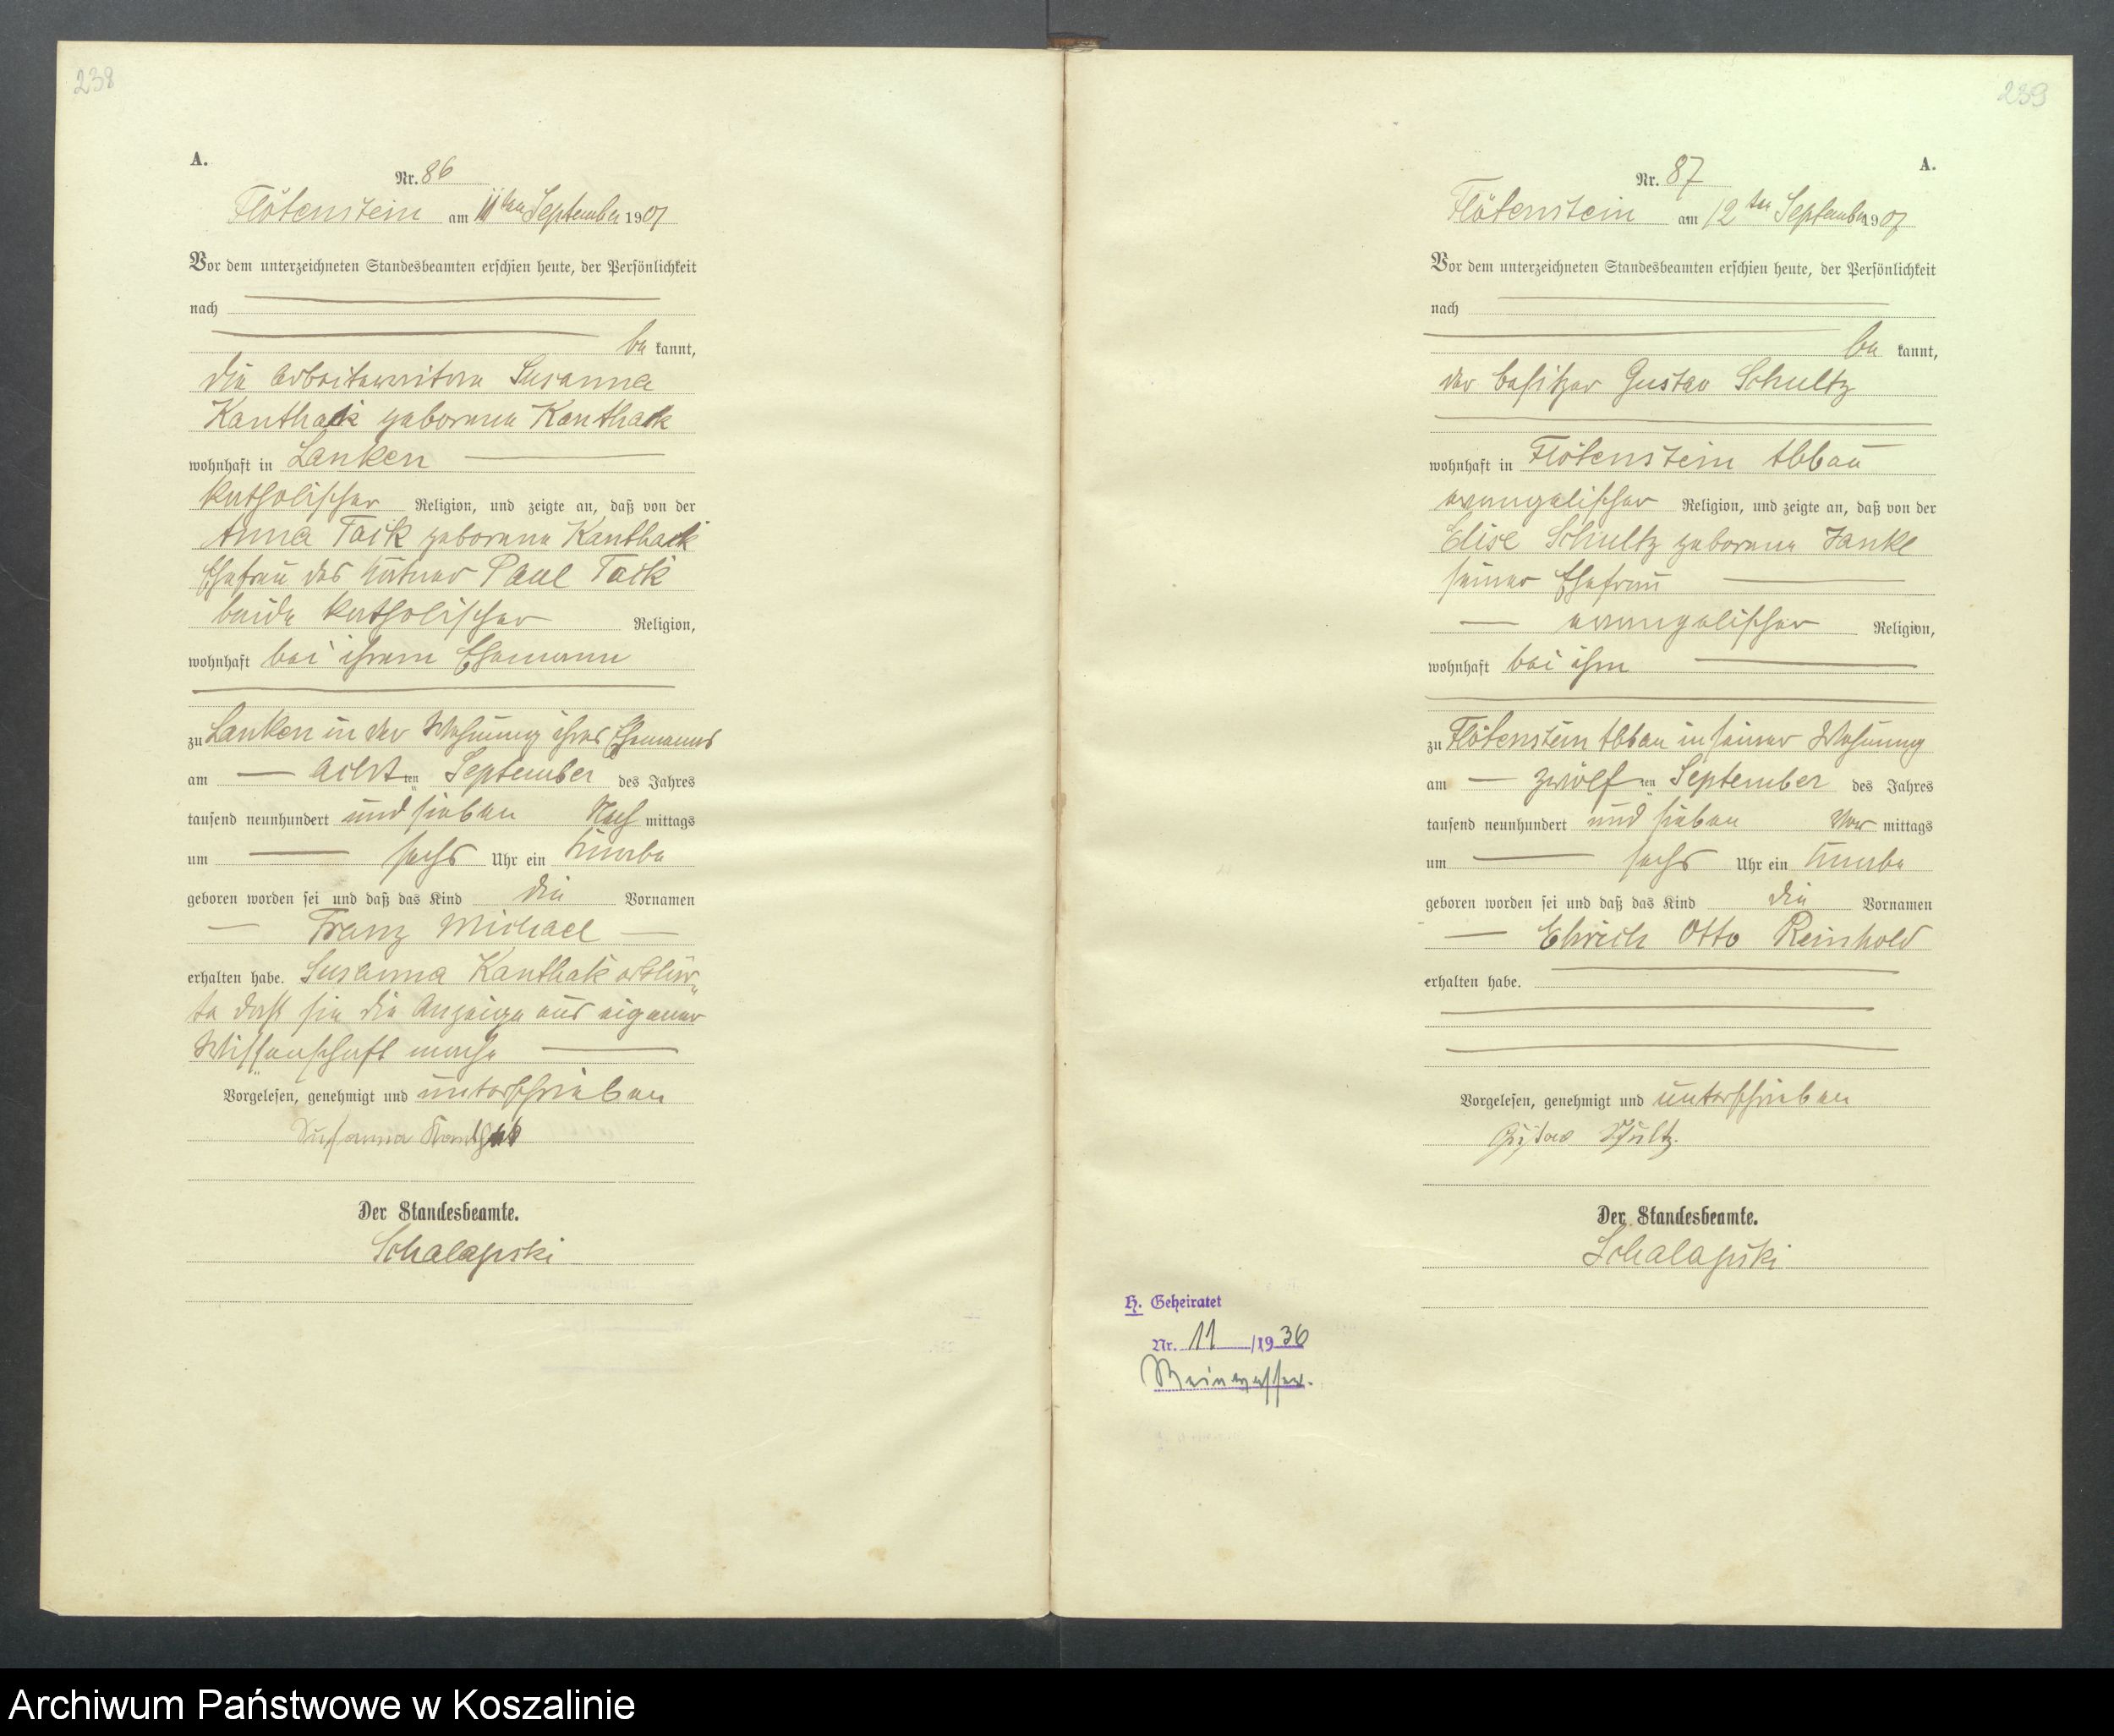 238
A.
Nr. 86
Flötenstein am 11ten September 1907
Vor dem unterzeichneten Standesbeamten erschien heute, der Persönlichkeit
nach
be kannt,
die Arbeiterwitwe Susanna
Kanthack geborene Kanthack
wohnhaft in Lanken
katholischer Religion, und zeigte an, daß von der
Anna Tack geborene Kanthack
Ehefrau des Kätner Paul Tack
beide katholischer Religion,
wohnhaft bei ihrem Ehemann
zu Lanken in der Wohnung ihres Ehemanns
am achtten September des Jahres
tausend neunhundert und sieben Nach mittags
um sechs Uhr ein Knabe
geboren worden sei und daß das Kind die Vornamen
Franz Michael
erhalten habe. Susanna Kanthak erklär„
te daß sie die Anzeige aus eigener
Wissenschaft mache
Vorgelesen, genehmigt und unterschrieben
Susanna Kanthak
Der Standesbeamte.
Schalapski
239
A.
Nr. 87
Flötenstein am 12ten September 1907
Vor dem unterzeichneten Standesbeamten erschien heute, der Persönlichkeit
nach
be kannt,
der Besitzer Gustav Schultz
wohnhaft in Flötenstein Abbau
evangelischer Religion, und zeigte an, daß von der
Elise Schultz geborene Janke
seiner Ehefrau
evangelischer Religion,
wohnhaft bei ihm
zu Flötenstein Abbau in seiner Wohnung
am zwölften September des Jahres
tausend neunhundert und sieben Vor mittags
um sechs Uhr ein Knabe
geboren worden sei und daß das Kind die Vornamen
Ehrich Otto Reinhold
erhalten habe.
Vorgelesen, genehmigt und unterschrieben
Gustav Schultz.
Der Standesbeamte.
Schalapski
H. Geheiratet
Nr. 11 /1936
Archiwum Państwowe w Koszalinie